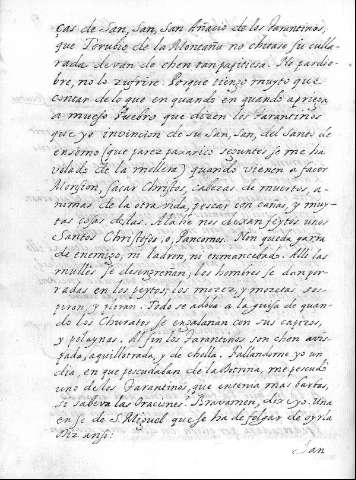 ças de San, San, San Añacio de los Parantinos,
que Torubio de la Montaña no chetase su culla-
rada de van de chen tanpatitesa. No pardio-
bre, no lo zufrire. Porque tiengo muyto que
contar de lo que en quando en quando aprieza
a mueso Puebro que dizen los Parantinos
que yo invincion de su San, San, del Santo de
ensomo (que parez paxarico se me ha
volado de la mollera) quando vienen a facor
Mongion, sacar Christos, cabezas de muertos, a-
nimas de la otra vida, pescar con cañas, y muy-
tas cosas de las. Alahe nes dexan feytos unos
Santos Christofos, o, Pancornos. Non queda garra
de enemigo, ni ladron, ni enmancebado. Alli las
mulles se desgreñan, los hombres se dan por-
radas en los peytos, los mozez, y mozetas sos-
piran, y ploran. Todo se adoba a la guisa de quan-
do los Churatos se engalanan con sus capizes,
y pelaynas. Al fin los Parantinos son chen avis-
pada, aquillotrada, y de cholla. Fallandome yo un
dia, en que pescudaban de la Dotrina, me pescudó
uno de los Parantinos, que entenia mas barbas,
si sabeva las Oraciones. Bravamen, dixe yo. Una
en se de S. Miguel que se ha de folgar de oyrla
Diz ansi:
San